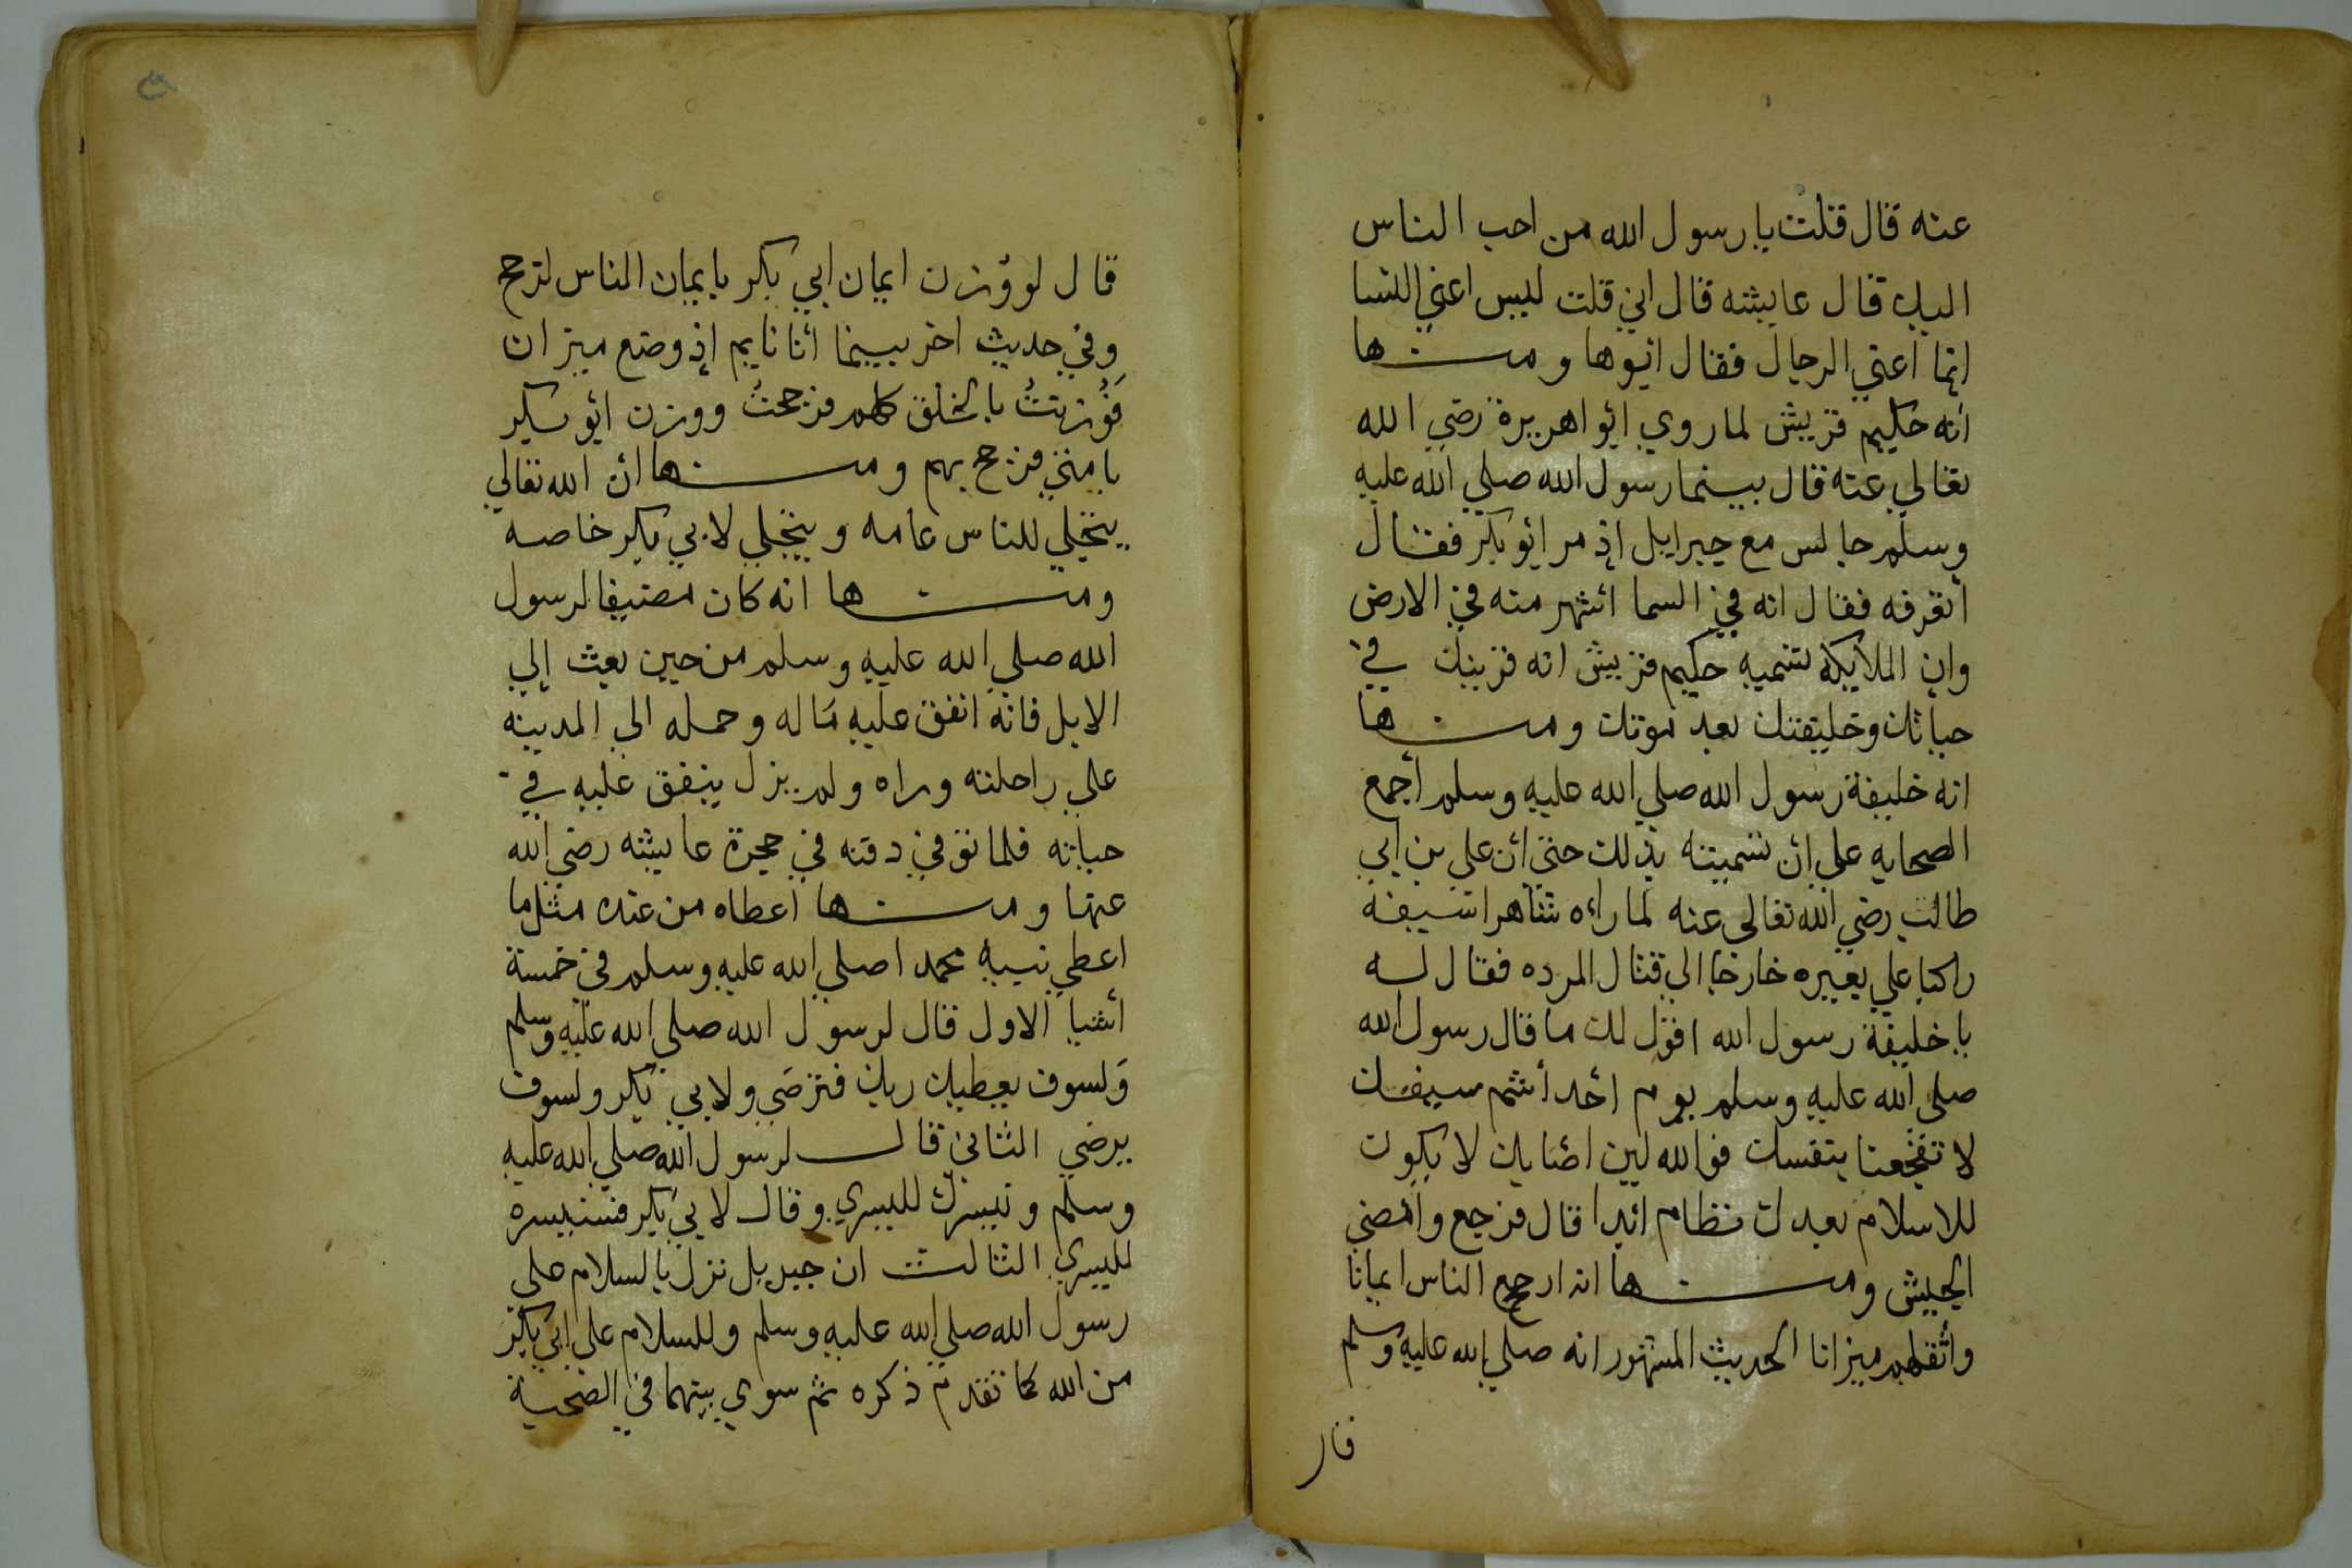 عنه قال قلت يا رسول الله من احب الناس
اليك قال عايشه قال اني قلت ليس اعني النسا
انما اعني الرجال فقال ابوها ومنها
انه حكيم قريش لما روي ابو اهريرة رضي الله
تعالي عنه قال بينما رسول الله صلي الله عليه
وسلم جالس مع جبرايل إذ مر ابو بكر فقال
أتعرفه فقال انه في السما اشهر منه في الارض
وان الملايكه لتسميه حكيم قريش انه قرينك في
حياتك وخليفتك بعد موتك ومنها
انه خليفة رسول الله صلي الله عليه وسلم أجمع
الصحابه علي ان تسميته بذلك حتي أن علي بن ابي
طالب رضي الله تعالي عنه لما راءه شاهرا سيفه
راكبا علي بعيره خارجا الي قتال المرده فقال له
يا خليفة رسول الله اقول لك ما قال رسول الله
صلي الله عليه وسلم يوم احد أشم سيفك
لا تفجعنا بنفسك فوالله لين اصابك لا يكون
للاسلام بعدك نظام ابدا قال فرجع وأمضي
الجيش ومنها انه ارجح الناس ايمانا
وأثقلهم ميزانا الحديث المشهور انه صلي الله عليه وسلم
قال
قال لو وُزن ايمان ابي بكر بايمان الناس لترجح
وفي حديث اخر بينما أنا نايم إذ وضع ميزان
فَوُزنتُ بالخلق كلهم فرجحتُ ووزن ابو بكر
بامتي فرجح بهم ومنها ان الله تعالي
يتجلي للناس عامه ويتجلي لابي بكر خاصه
ومنها انه كان مضيفا لرسول
الله صلي الله عليه وسلم من حين بعث إلي
الابل فانه انفق عليه ماله وحمله الي المدينه
علي راحلته وراه ولم يزل ينفق عليه في
حياته فلما توفي دفنه في حجرة عايشه رضي الله
عنها ومنها اعطاه من عنده مثل ما
اعطي نبيه محمد ا صلي الله عليه وسلم في خمسة
أشيا الاول قال لرسول الله صلي الله عليه وسلم
وَلسوف يعطيك ربك فترضي ولابي بكر ولسوف
يرضي الثاني قال لرسول الله صلي الله عليه
وسلم ونيسرك لليسري وقال لابي بكر فسنيسره
لليسري الثالث ان جبريل نزل بالسلام علي
رسول الله صلي الله عليه وسلم وللسلام علي ابي بكر
من الله كما تقدم ذكره ثم سوي بينهما في الصحبة